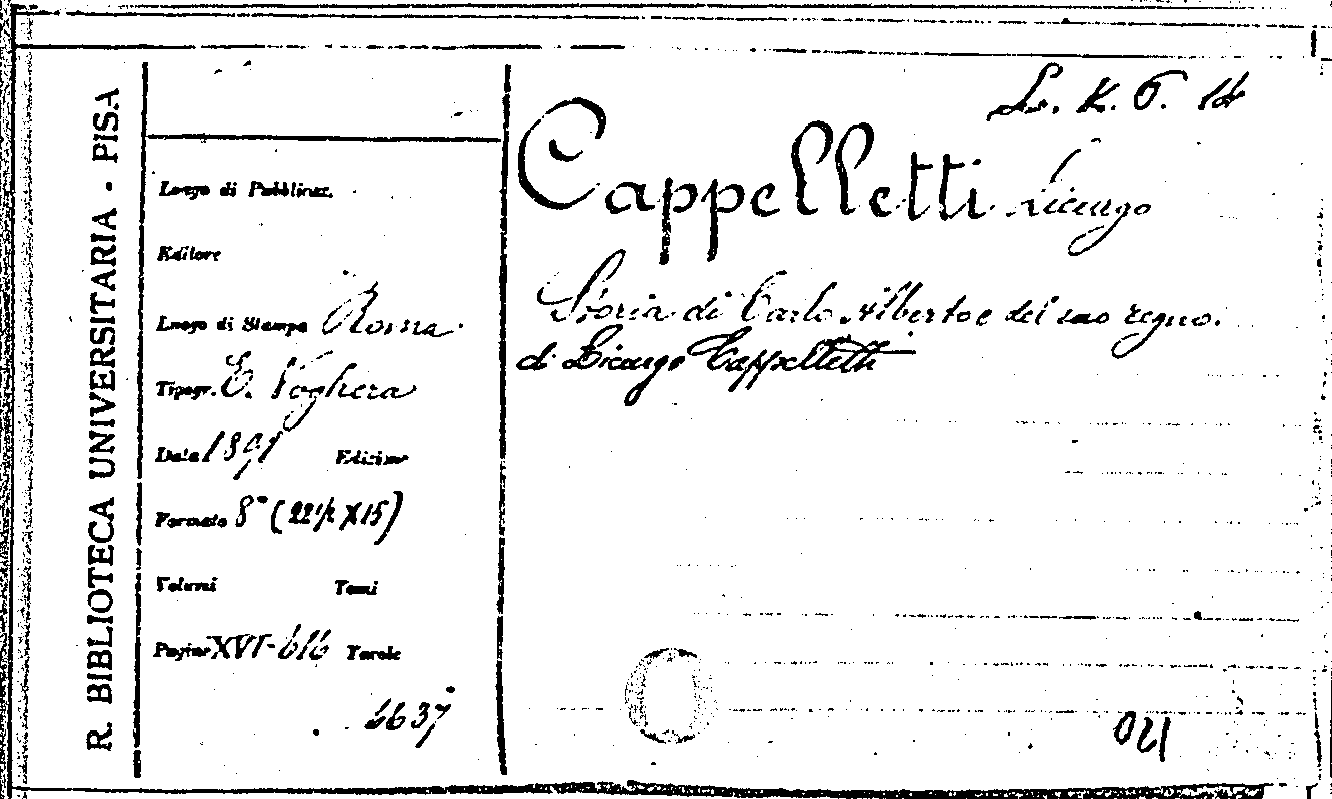 R. BIBLIOTECA UNIVERSITARIA - PISA
Luogo di Pubblicaz.
Editore
Luogo di Stampa Roma
Tipogr. E. Voghera
Data 1891 Edizione
Formato 8° (22½ X 15)
Volumi Tomi
Pagine XVI-616 Tavole
6637
14
Cappelletti Licurgo
Storia di Carlo Alberto e del suo regno.
di Licurgo Cappelletti
120